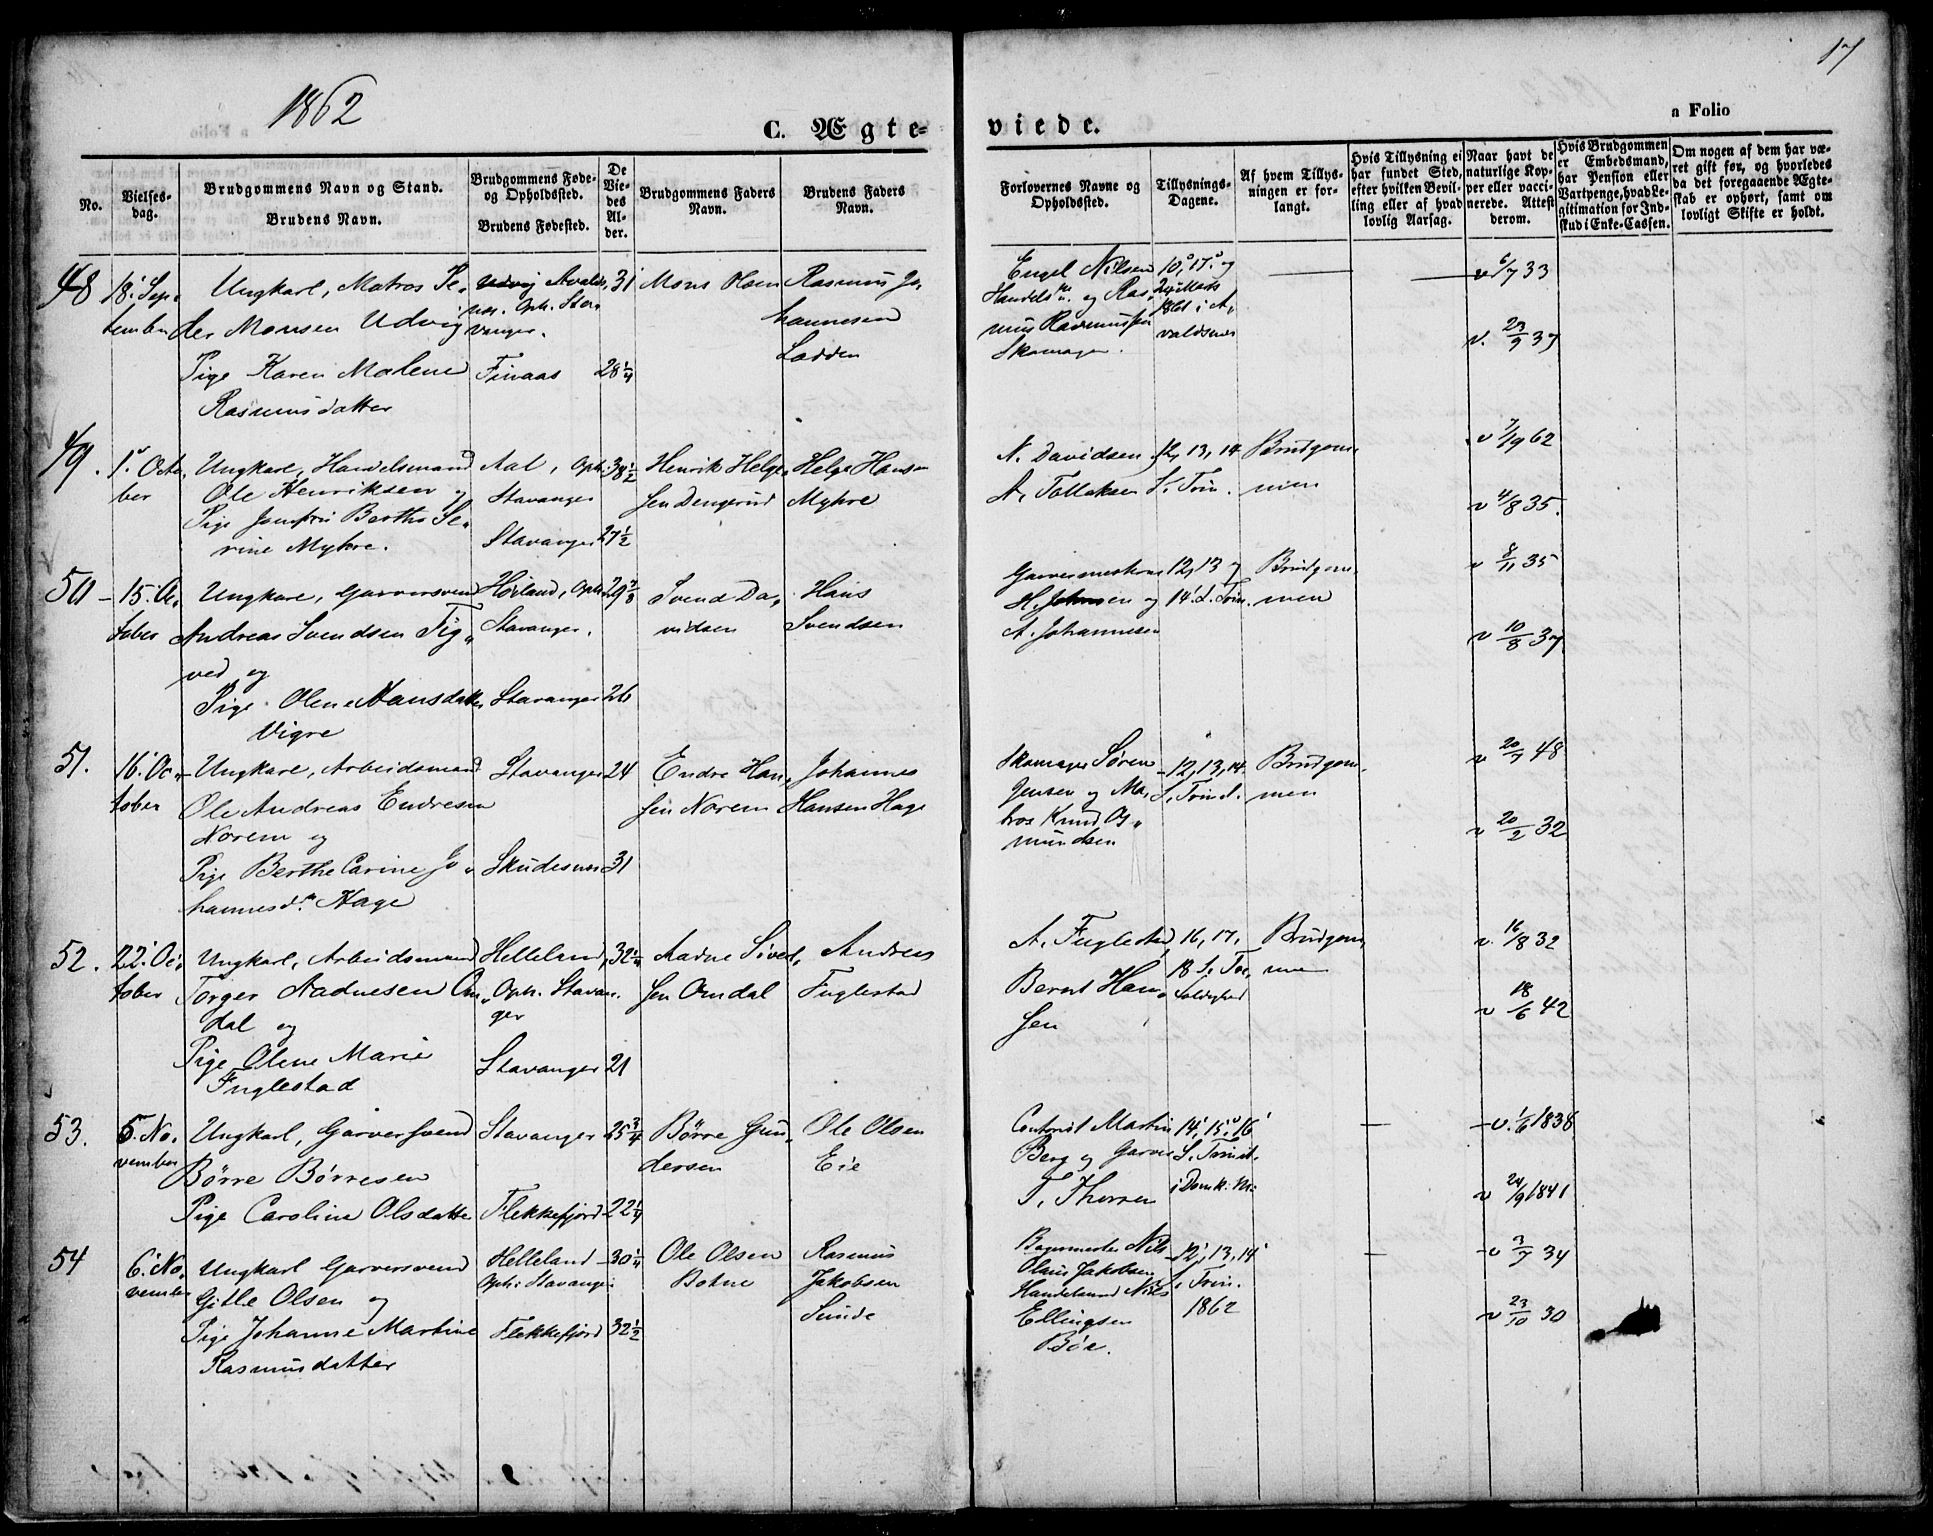 1862
17
C. Ægte-
viede.
a Folio
No.
Vielses-
dag.
Brudgommens Navn og Stand.
Brudens Navn.
Brudgommens Føde-
og Opholdssted.
Brudens Fødested.
De
Vie-
des
Al-
der.
Brudgommens Faders
Navn.
Brudens Faders
Navn.
Forlovernes Navne og
Opholdssted.
Tillysnings-
Dagene.
Af hvem Tillys-
ningen er for-
langt.
Hvis Tillysning ei
har fundet Sted,
efter hvilken Bevil-
ling eller af hvad
lovlig Aarsag.
Naar havt de
naturlige Kop-
per eller vacci-
nerede. Attest
derom.
Hvis Brudgommen
er Embedsmand,
har Pension eller
Vartpenge, hvad Le-
gitimation for Ind-
skud i Enke-Cassen.
Om nogen af dem har væ-
ret gift før, og hvorledes
da det foregaaende Ægte-
skab er ophørt, samt om
lovligt Skifte er holdt.
48
18. Sep-
tember
Ungkarl, Matros Pe-
der Monsen Udvig
Pige Karen Malene
Rasmusdatter
Udvig Avalds-
nes. Oph. Sta-
vanger.
Finaas
31
28 1/4
Mons Olsen
Rasmus Jo-
hannesen
Lædden
Engel Nilsen
Handelsm. og Ras-
mus Rasmussen
Skomager.
10, 17. og
24 Marts
1861 i A-
valdsnes
v 6/7 33
v. 23/7 37
49.
1. Octo-
ber
Ungkarl, Handelsmand
Ole Henriksen og
Pige Jomfru Berthe Se-
rine Myhre.
Aal, Oph.
Stavanger
Stavanger
38 1/2
27 1/2
Henrik Helge-
sen Dengerud
Helge Hansen
Myhre
N. Davidsen
A. Tollaksen
12, 13, 14
S. Trin.
Brudgom-
men
v 7/9 62
v 4/8 35.
50
15. Oc-
tober
Ungkarl, Garversvend
Andreas Svendsen Tig-
ved og
Pige Olene Hansdatter
Vigre
Høiland, Oph.
Stavanger.
Stavanger
29 3/8
26
Svend Da-
vidsen
Hans
Svendsen
Garvermesterne
H. Johnsen og
A. Johannesen
12, 13 og
14. S. Trin.
Brudgom-
men
v 8/11 35
v 10/8 37.
51.
16. Oc-
tober
Ungkarl, Arbeidsmand
Ole Andreas Endresen
Norem og
Pige Berthe Carine Jo-
hannesdr. Hage
Stavanger
Skudesnes
24
31
Endre Han-
sen Norem
Johannes
Hansen Hage
Skomager Søren
Jensen og Ma-
tros Knud As-
mundsen
12, 13, 14
S. Trinit.
Brudgom-
men
v 20/7 48
v 20/2 32
52.
22. Oc-
tober
Ungkarl, Arbeidsmand
Torger Aadnesen Om-
dal og
Pige Olene Marie
Fuglestad
Helleland,
Oph. Stavan-
ger
Stavanger
32 1/4
21
Aadne Sivert-
sen Omdal
Andreas
Fuglestad
A. Fuglestad
Bernt Han-
sen
16, 17,
18 S. Tre-
foldighed
Brudgom-
men
v. 16/8 32
v 18/6 42
53.
5. No-
vember
Ungkarl, Garversvend
Børre Børresen
Pige Caroline Olsdatter
Stavanger
Flekkefjord
25 3/4
22 1/4
Børre Gun-
dersen
Ole Olsen
Eie
Contorist Martin
Berg og Garver
T. Thorsen
14, 15, 16
S. Trinit.
i Domk. Mr.
v. 1/6 1838
v 24/9 1841
54
6. No-
vember
Ungkarl Garversvend
Gitle Olsen og
Pige Johanne Martine
Rasmusdatter
Helleland
Oph: Stavanger
Flekkefjord
30 1/4
32 1/2
Ole Olsen
Botne
Rasmus
Jakobsen
Sunde
Bagermester Nils
Olaus Jakobsen
Handelsmand Nils
Ellingsen
Bøe.
12, 13, 14
S. Trin.
1862
v 3/7 34
v 23/10 30